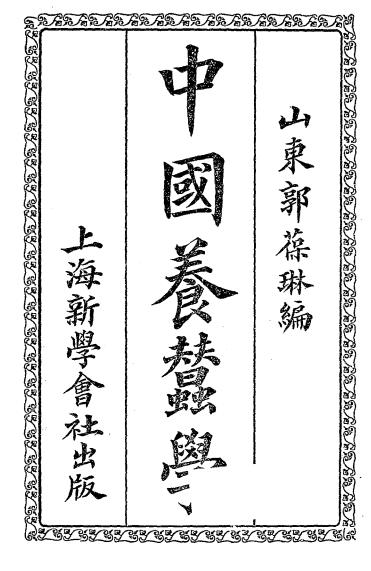 山東郭葆琳編
中國養蠶學
上海新學會社出版